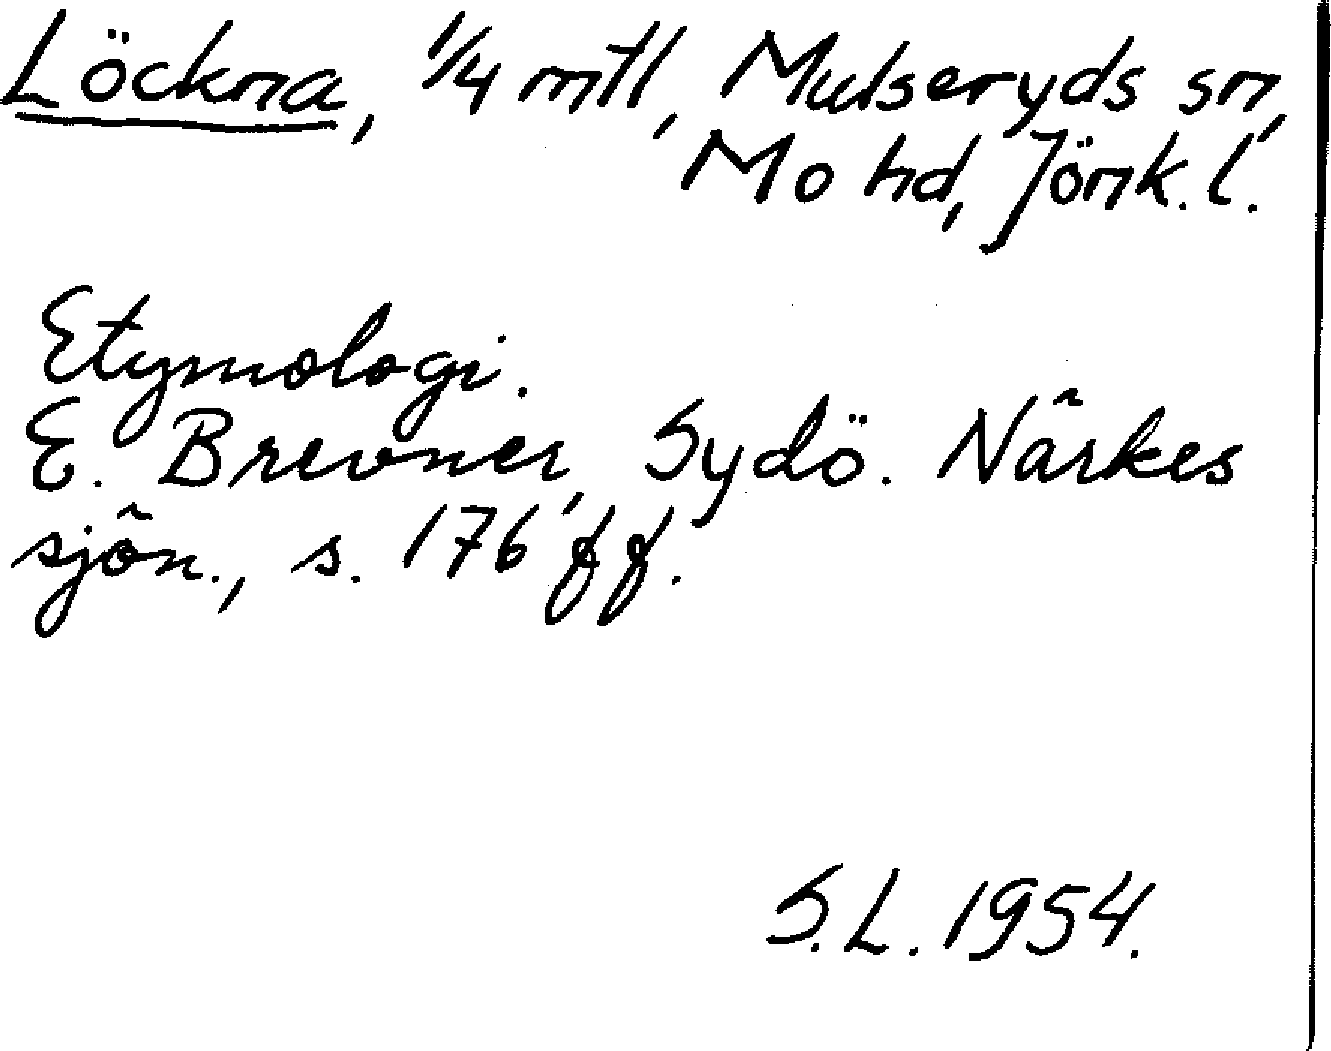 Löckna, 1/4 mtl, Mulseryds sn,
Mo hd, Jönk. l.
Etymologi.
E. Brevner, Sydö. Närkes
sjön., s. 176 ff.
S. L. 1954.